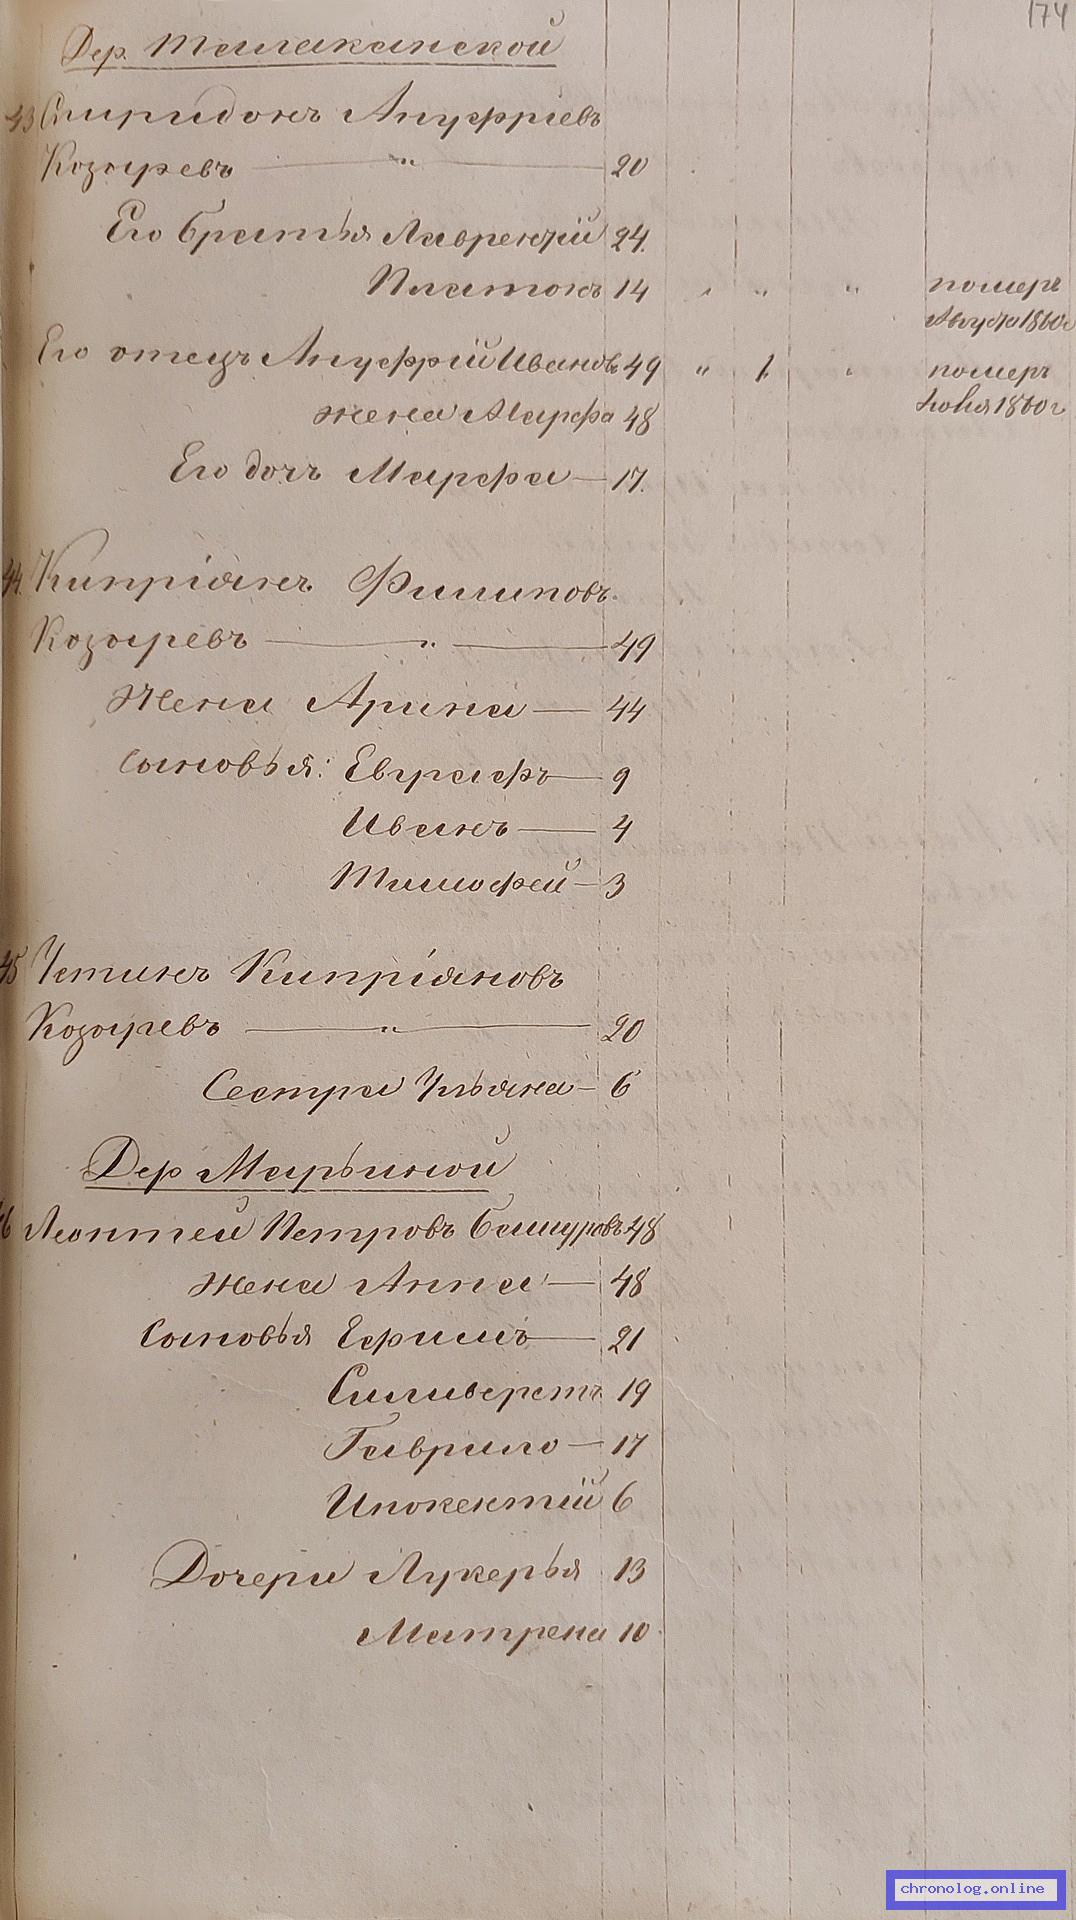 174
Дер. Малаканской
43 Спиридонъ Ануфріевъ
Козыревъ — " — 20
Его братья Лаврентій 24.
Платонъ 14 " " " померъ
Августа 1860 г
Его отецъ Ануфрій Ивановъ 49 " 1. " померъ
Іюня 1860 г
жена Марфа 48
Его дочъ Марфа — 17.
44. Кипріянъ Филиповъ.
Козыревъ — " — 49
Жена Арина — 44
Сыновья: Евграфъ — 9
Иванъ — 4
Тимофей — 3
45 Устинъ Кипріяновъ
Козыревъ — " — 20
Сестра Ульяна — 6
Дер Марьиной
46 Леонтей Петровъ Башуровъ 48
жена Анна — 48
Сыновья Ефимъ — 21
Силиверстъ 19
Гаврило — 17
Инокентій 6
Дочери Лукерья 13
Матрена 10
chronolog.online